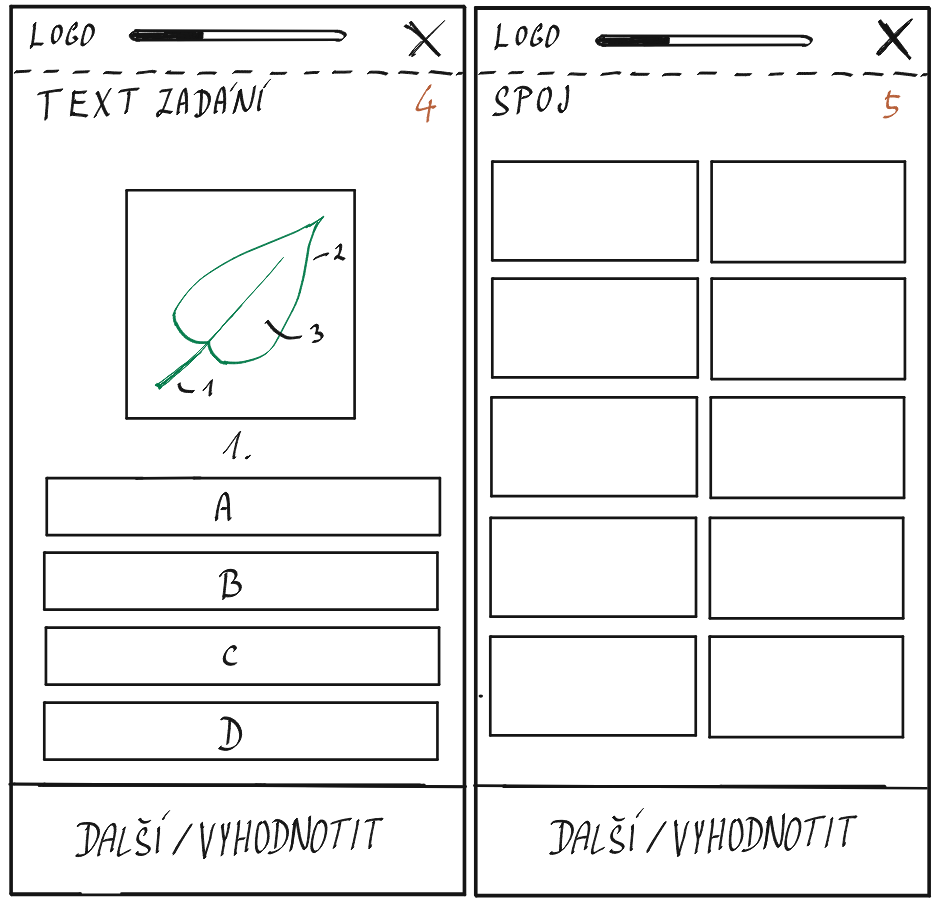 LOGO
TEXT ZADÁNÍ 4
2
3
1
1.
A
B
C
D
DALŠÍ/VYHODNOTIT
LOGO
SPOJ 5
DALŠÍ/VYHODNOTIT